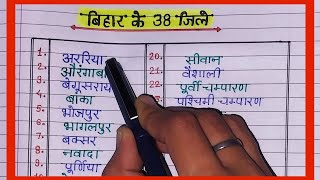 बिहार के 38 जिले
1. अररिया
2. औरंगाबा
3. बेगूसराय
4. बांका
5. भोजपुर
6. भागलपुर
7. बक्सर
8. नवादा
9. पूर्णिया
20. सीवान
21. वैशाली
22. पूर्वी चम्पारण
पश्चिमी चम्पारण